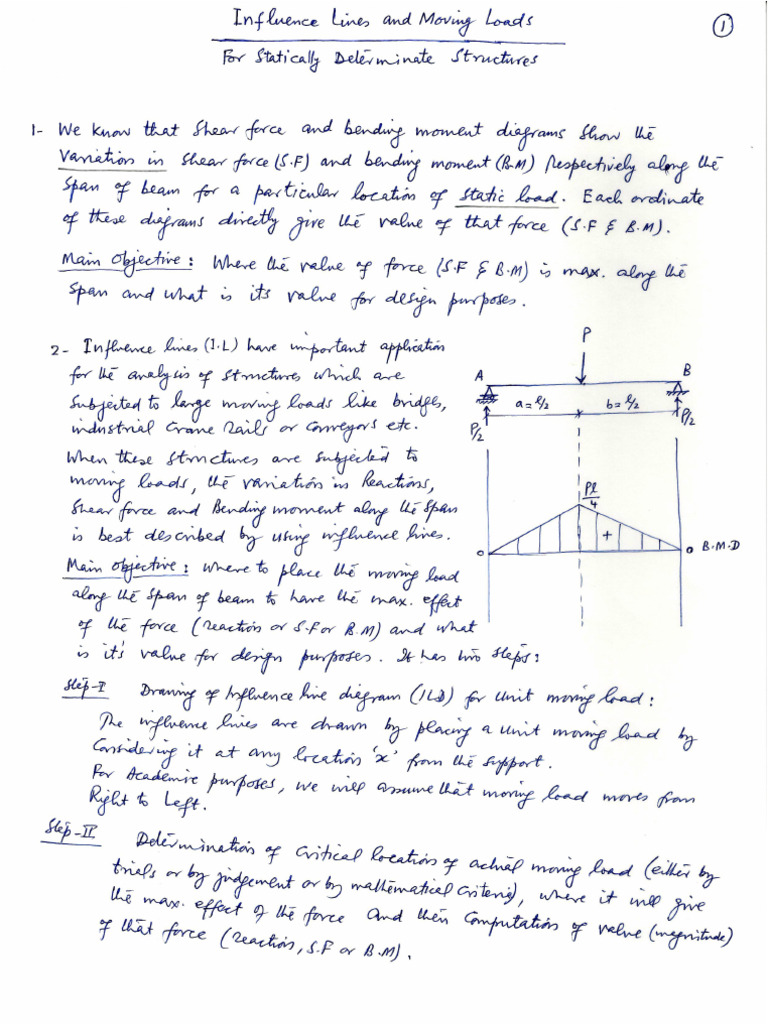 Influence Lines and Moving Loads
①
For Statically Determinate Structures
1- We know that Shear force and bending moment diagrams show the
Variation in Shear force (S.F) and bending moment (B.M) Respectively along the
span of beam for a particular location of static load. Each ordinate
of these diagrams directly give the value of that force (S.F & B.M).
Main Objective: Where the value of force (S.F & B.M) is max. along the
span and what is its value for design purposes.
2- Influence lines (I.L) have important application
for the analysis of structures which are
subjected to large moving loads like bridges,
industrial Crane rails or conveyors etc.
When these structures are subjected to
moving loads, the variation in Reactions,
Shear force and Bending moment along the span
is best described by using influence lines.
Main objective: where to place the moving load
along the span of beam to have the max. effect
of the force (reaction or S.F or B.M) and what
is it's value for design purposes. It has two steps:
P
A
B
a = l/2
b = l/2
P/2
P/2
Pl/4
+
o
o B.M.D
Step-I Drawing of Influence line diagram (ILD) for Unit moving load:
The influence lines are drawn by placing a unit moving load by
Considering it at any location 'x' from the support.
For Academic purposes, we will assume that moving load moves from
Right to Left.
Step-II Determination of critical location of actual moving load (either by
trials or by judgement or by mathematical criteria), where it will give
the max. effect of the force and then Computation of value (magnitude)
of that force (reaction, S.F or B.M).